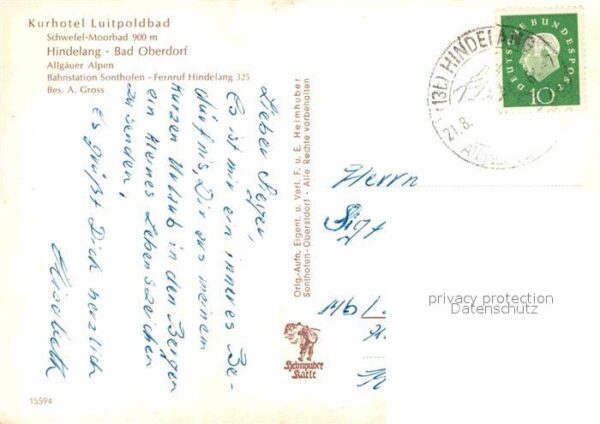 Kurhotel Luitpoldbad
Schwefel-Moorbad 900 m
Hindelang - Bad Oberdorf
Allgäuer Alpen
Bahnstation Sonthofen - Fernruf Hindelang 325
Bes. A. Gross
Lieber
Es ist mir ein inneres Be-
dürfnis, Dir aus meinem
kurzen Urlaub in den Bergen
ein kleines Lebenszeichen
zu senden.
Es grüßt Dich herzlich
Elisabeth
15594
Orig.-Aufn. Eigent. u. Verl. F. u. E. Heimhuber
Sonthofen-Oberstdorf - Alle Rechte vorbehalten
Heimhuber
Karte
(13b) HINDELANG
21.8.
DEUTSCHE BUNDESPOST
10
Herrn
privacy protection
Datenschutz